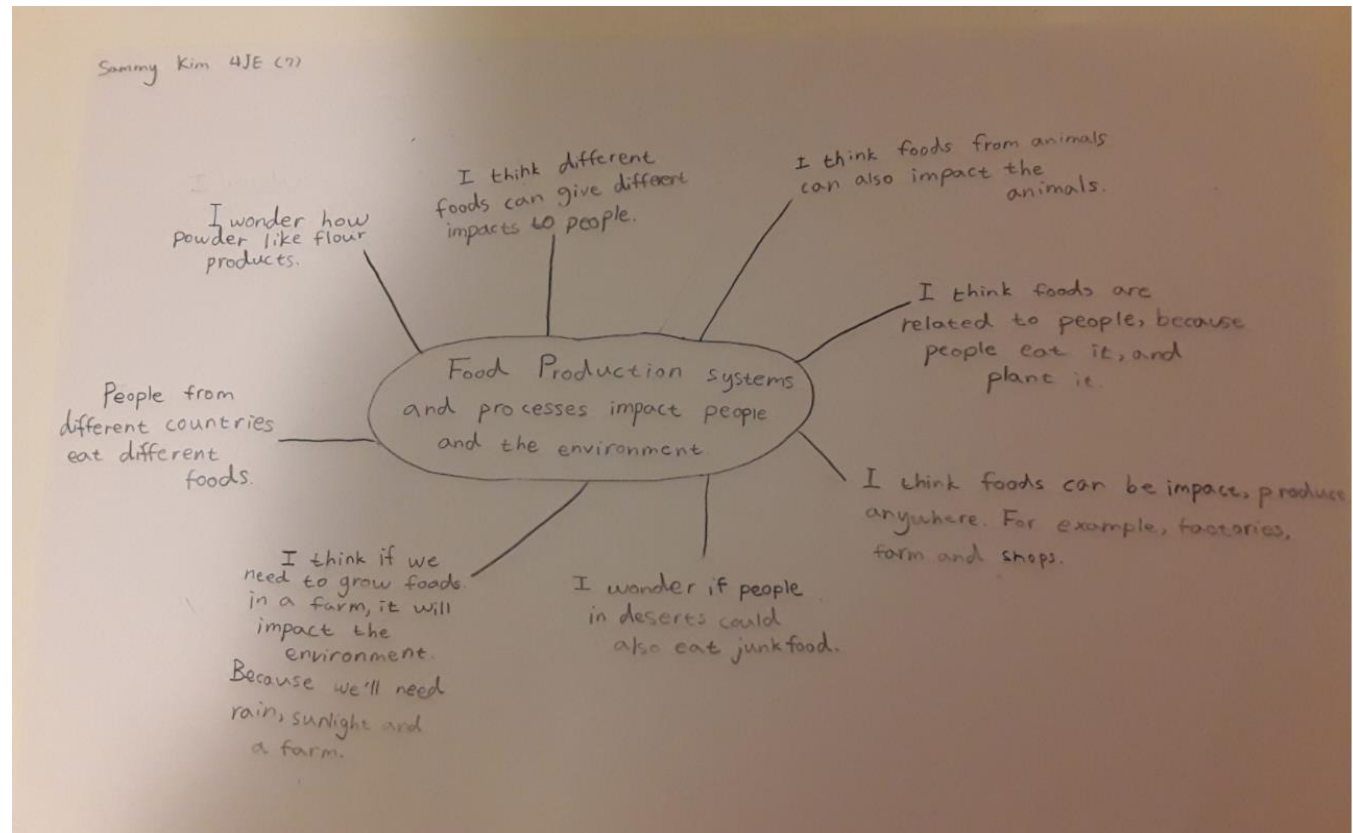 Sammy Kim 4JE (7)
I wonder how
powder like flour
products.
I think different
foods can give differnt
impacts to people.
I think foods from animals
can also impact the
animals.
I think foods are
related to people, because
people eat it, and
plant it.
Food Production systems
and processes impact people
and the environment
People from
different countries
eat different
foods.
I think foods can be impact, produce
anywhere. For example, factories,
farm and shops.
I think if we
need to grow foods
in a farm, it will
impact the
environment.
Because we'll need
rain, sunlight and
a farm.
I wonder if people
in deserts could
also eat junkfood.